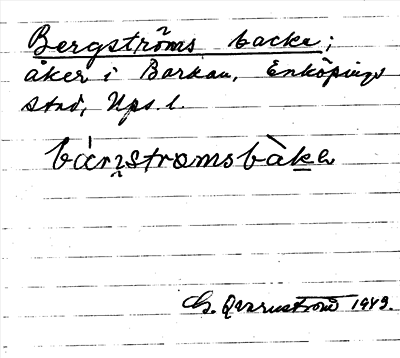 Bergströms backe;
åker i Borkan, Enköpings
stad, Ups. l.
bàrʒstromsbàke
G. Qvarnström 1949.